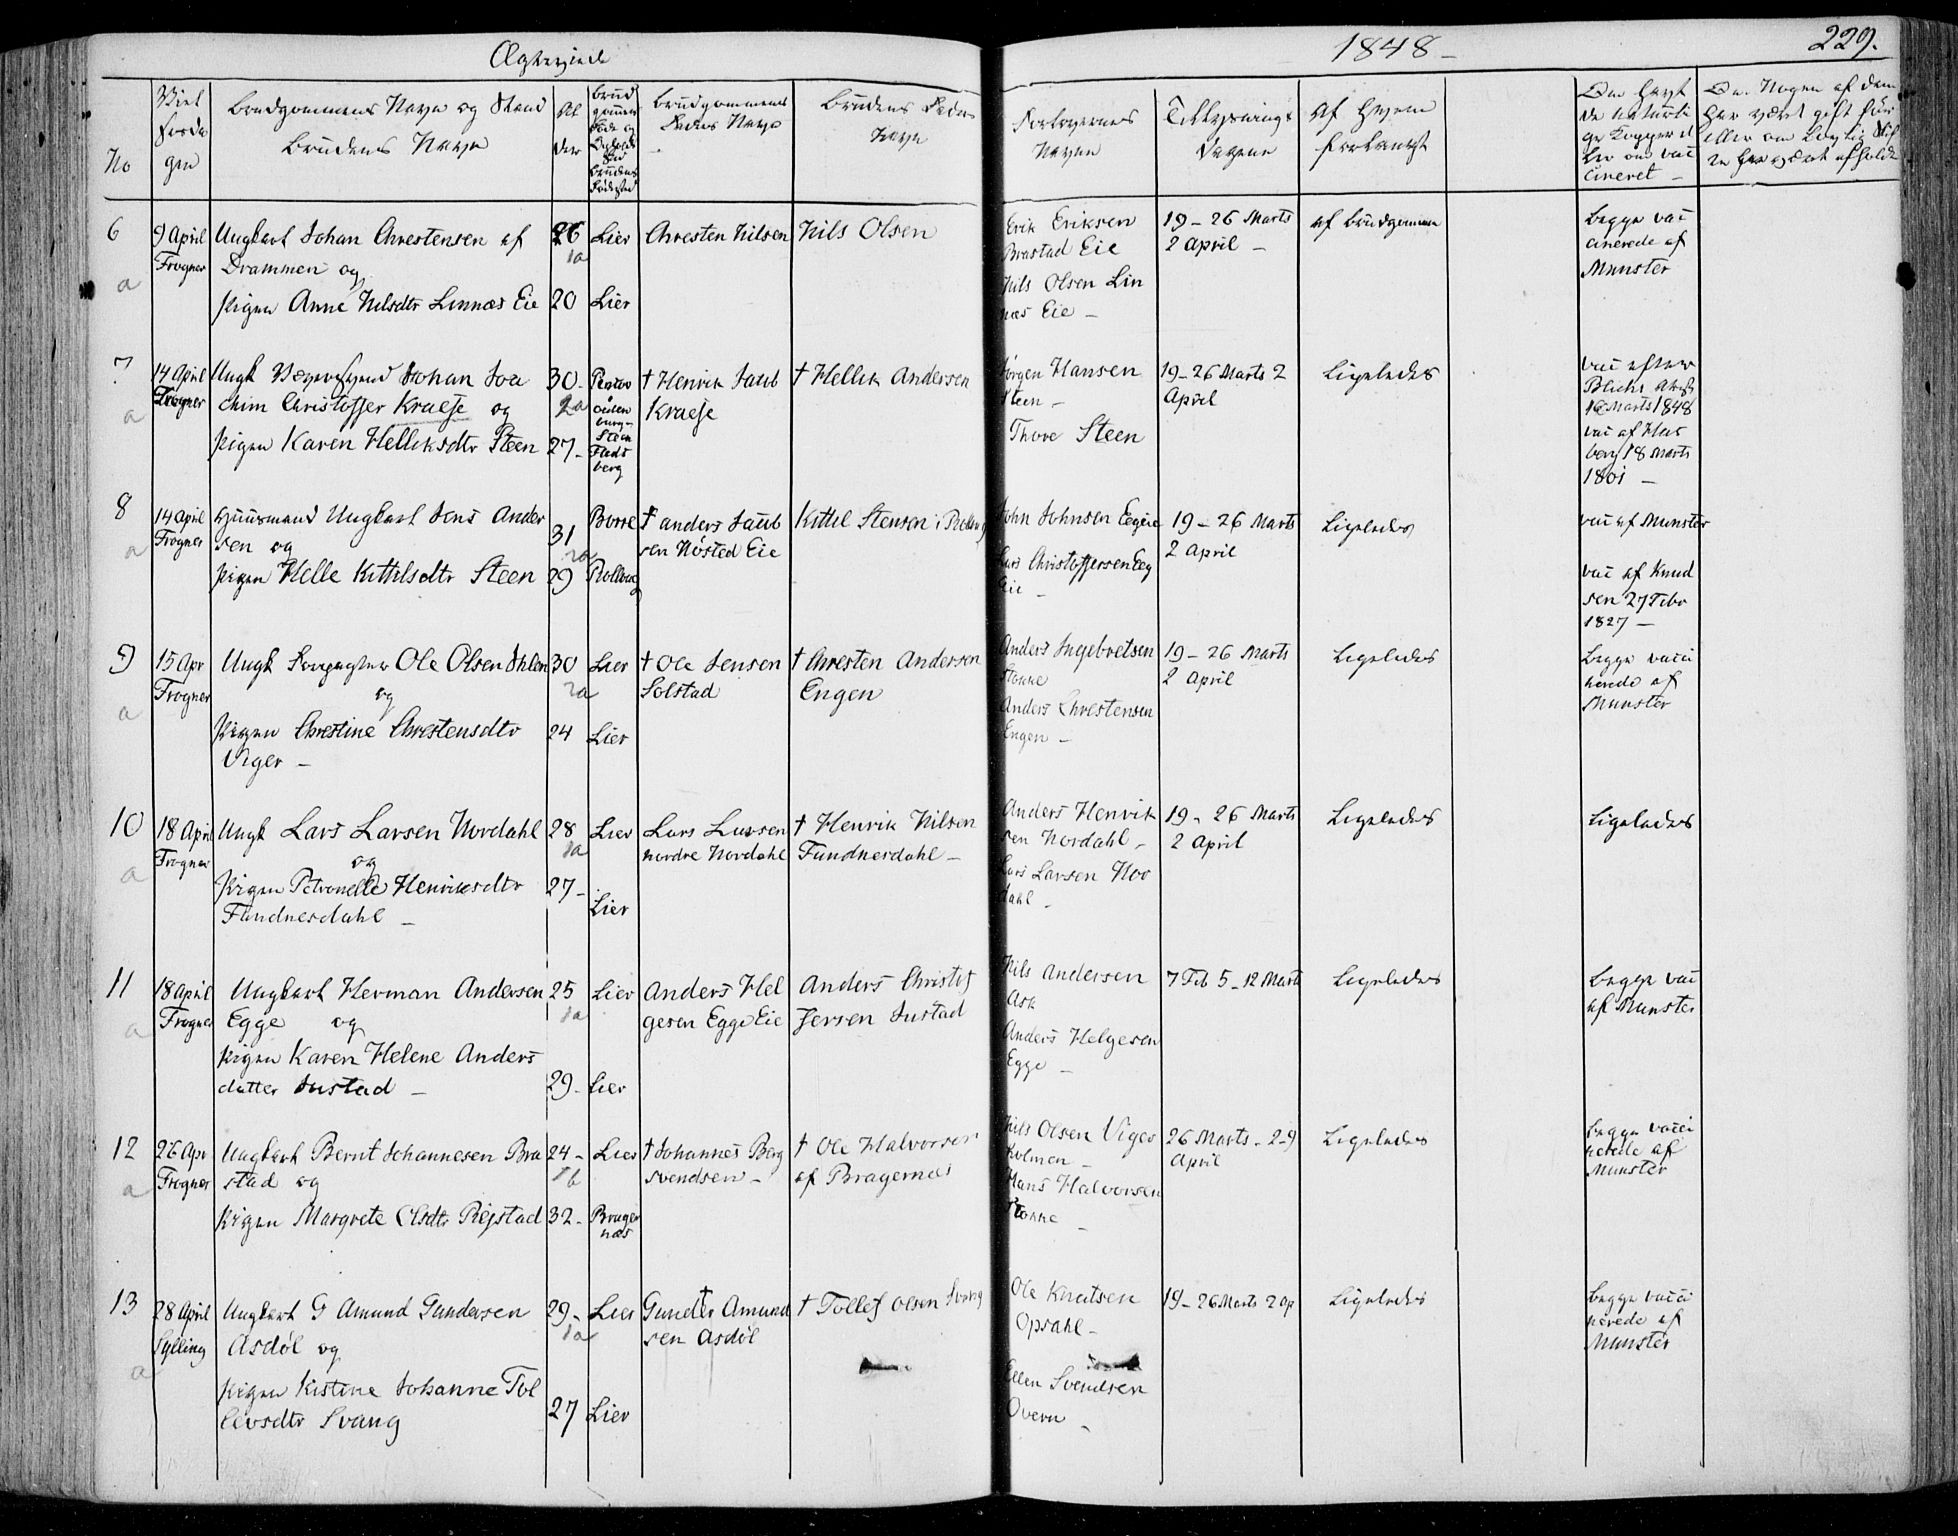 Ægteviede
1848 –
229.
No
Viel
sesda
gen
Brudgommens Navn og Stand
Brudens Navn
Al
der
Brudgommens
Faders Navn
Brudens Faders
Navn
Forlovernes
Navne
Tillysnings
Dagene
Af Hvem
forlangt
6
9 April
Frogner
a
Ungkarl Johan Chrestensen af
Drammen og
Pigen Anne Nilsdtr Linnæs Eie
26
1a
20
Lier
Lier
Chresten Nilsen
Nils Olsen
Erik Eriksen
Brastad Eie
Nils Olsen Lin
næs Eie –
19 – 26 Marts
2 April –
af Brudgommen
Begge vac
cinerede af
Munster
7
14 April
Frogner
a
Ungk Væversvend Johan Joa
chim Christoffer Kraefe og
Pigen Karen Helliksdtr Steen
30 –
2a
27 –
burg –
Steen
Flads
berg
† Henrik Jacob
Kraefe
† Hellik Andersen
Jørgen Hansen
Steen –
Thore Steen
19 – 26 Marts 2
April
Ligeledes
vac efter
Blichs Attest
16 Marts 1848
vac af
18 Marts
1801 –
8
14 April
Frogner
a
Huusmand Ungkarl Jens Ander
sen og
Pigen Helle Kittilsdtr Steen
31
2a
29
Borre
Rolloug
† Anders Jacob
sen Nøsted Eie
Kittil Stensen i Rolloug
John Johnsen Eegeie
Lars Christoffersen Eeg
Eie –
19 – 26 Marts
2 April
Ligeledes
vac af Munster
vac af Knud
sen 27 Febr
1827 –
9
15 Apr
Frogner
a
Ungk Forpagter Ole Olsen Ihlen
og
Pigen Chrestine Chrestensdtr
Viger –
30
2a
24
Lier
Lier
† Ole Jensen
Solstad
† Chresten Andersen
Engen
Anders Ingebretsen
Stonne
Anders Chrestensen
Engen –
19 – 26 Marts
2 April
Ligeledes
Begge vacci
nerede af
Munster
10
18 April
Frogner
a
Ungk Lars Larsen Nordahl
og
Pigen Petronelle Henriksdtr
Fundnesdahl –
28
1a
27 –
Lier
Lier
Lars Larsen
nordre Nordahl
† Henrik Nilsen
Fundnesdahl –
Anders Henrik
sen Nordahl –
Lars Larsen Nor
dahl –
19 – 26 Marts
2 April
Ligeledes
Ligeledes
11
18 April
Frogner
a
Ungkarl Herman Andersen
Egge og
Pigen Karen Helene Anders
datter Justad –
25
1a
29 –
Lier
Lier
Anders Hel
gesen Egge Eie
Anders Christof
fersen Justad
Nils Andersen
Ask
Anders Helgesen
Egge –
7 Feb 5 – 12 Marts
Ligeledes
Begge vac
af Munster
12
26 Apr
Frogner
a
Ungkarl Bernt Johannesen Bra
stad og
Pigen Margrete Olsdtr Rejstad
24 –
1b
32 –
Lier
Brager
næs
† Johannes Berg
svendsen –
† Ole Halvorsen
af Bragernæs
Nils Olsen Viger
Kolmen –
Hans Halvorsen
Stonne –
26 Marts – 2 – 9
April
Ligeledes
Begge vacci
nerede af
Munster
13
28 April
Sylling
a
Ungkarl G Amund Gundersen
Asdøl og
Pigen Kistine Johanne Tol
levsdtr Svang
29 –
1a
27
Lier
Lier
† Gunder Amund
sen Asdøl
† Tollef Olsen Svang
Ole Knutsen
Opsahl –
Ellen Svendsen
Overn –
19 – 26 Marts 2 Ap
Ligeledes
Begge vacci
nerede af
Munster